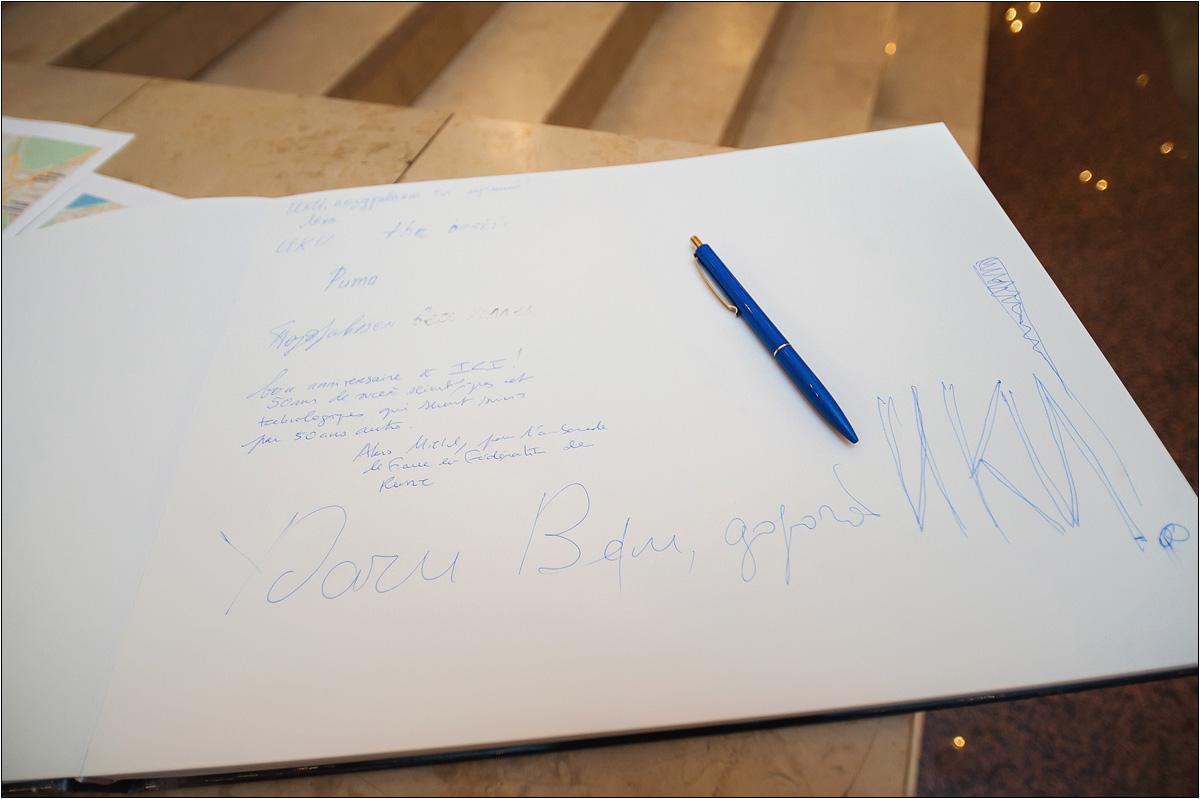 ИКИ, поздравляю
ИКИ the
Рита
Поздравляем
bon anniversaire à IKI!
50 ans de succès scientifiques et
technologiques qui seront suivis
par 50 ans autres.
Alain Michel, pour l'ambassade
de France en Fédération de
Russie
Удачи Вам, дорогой ИКИ!